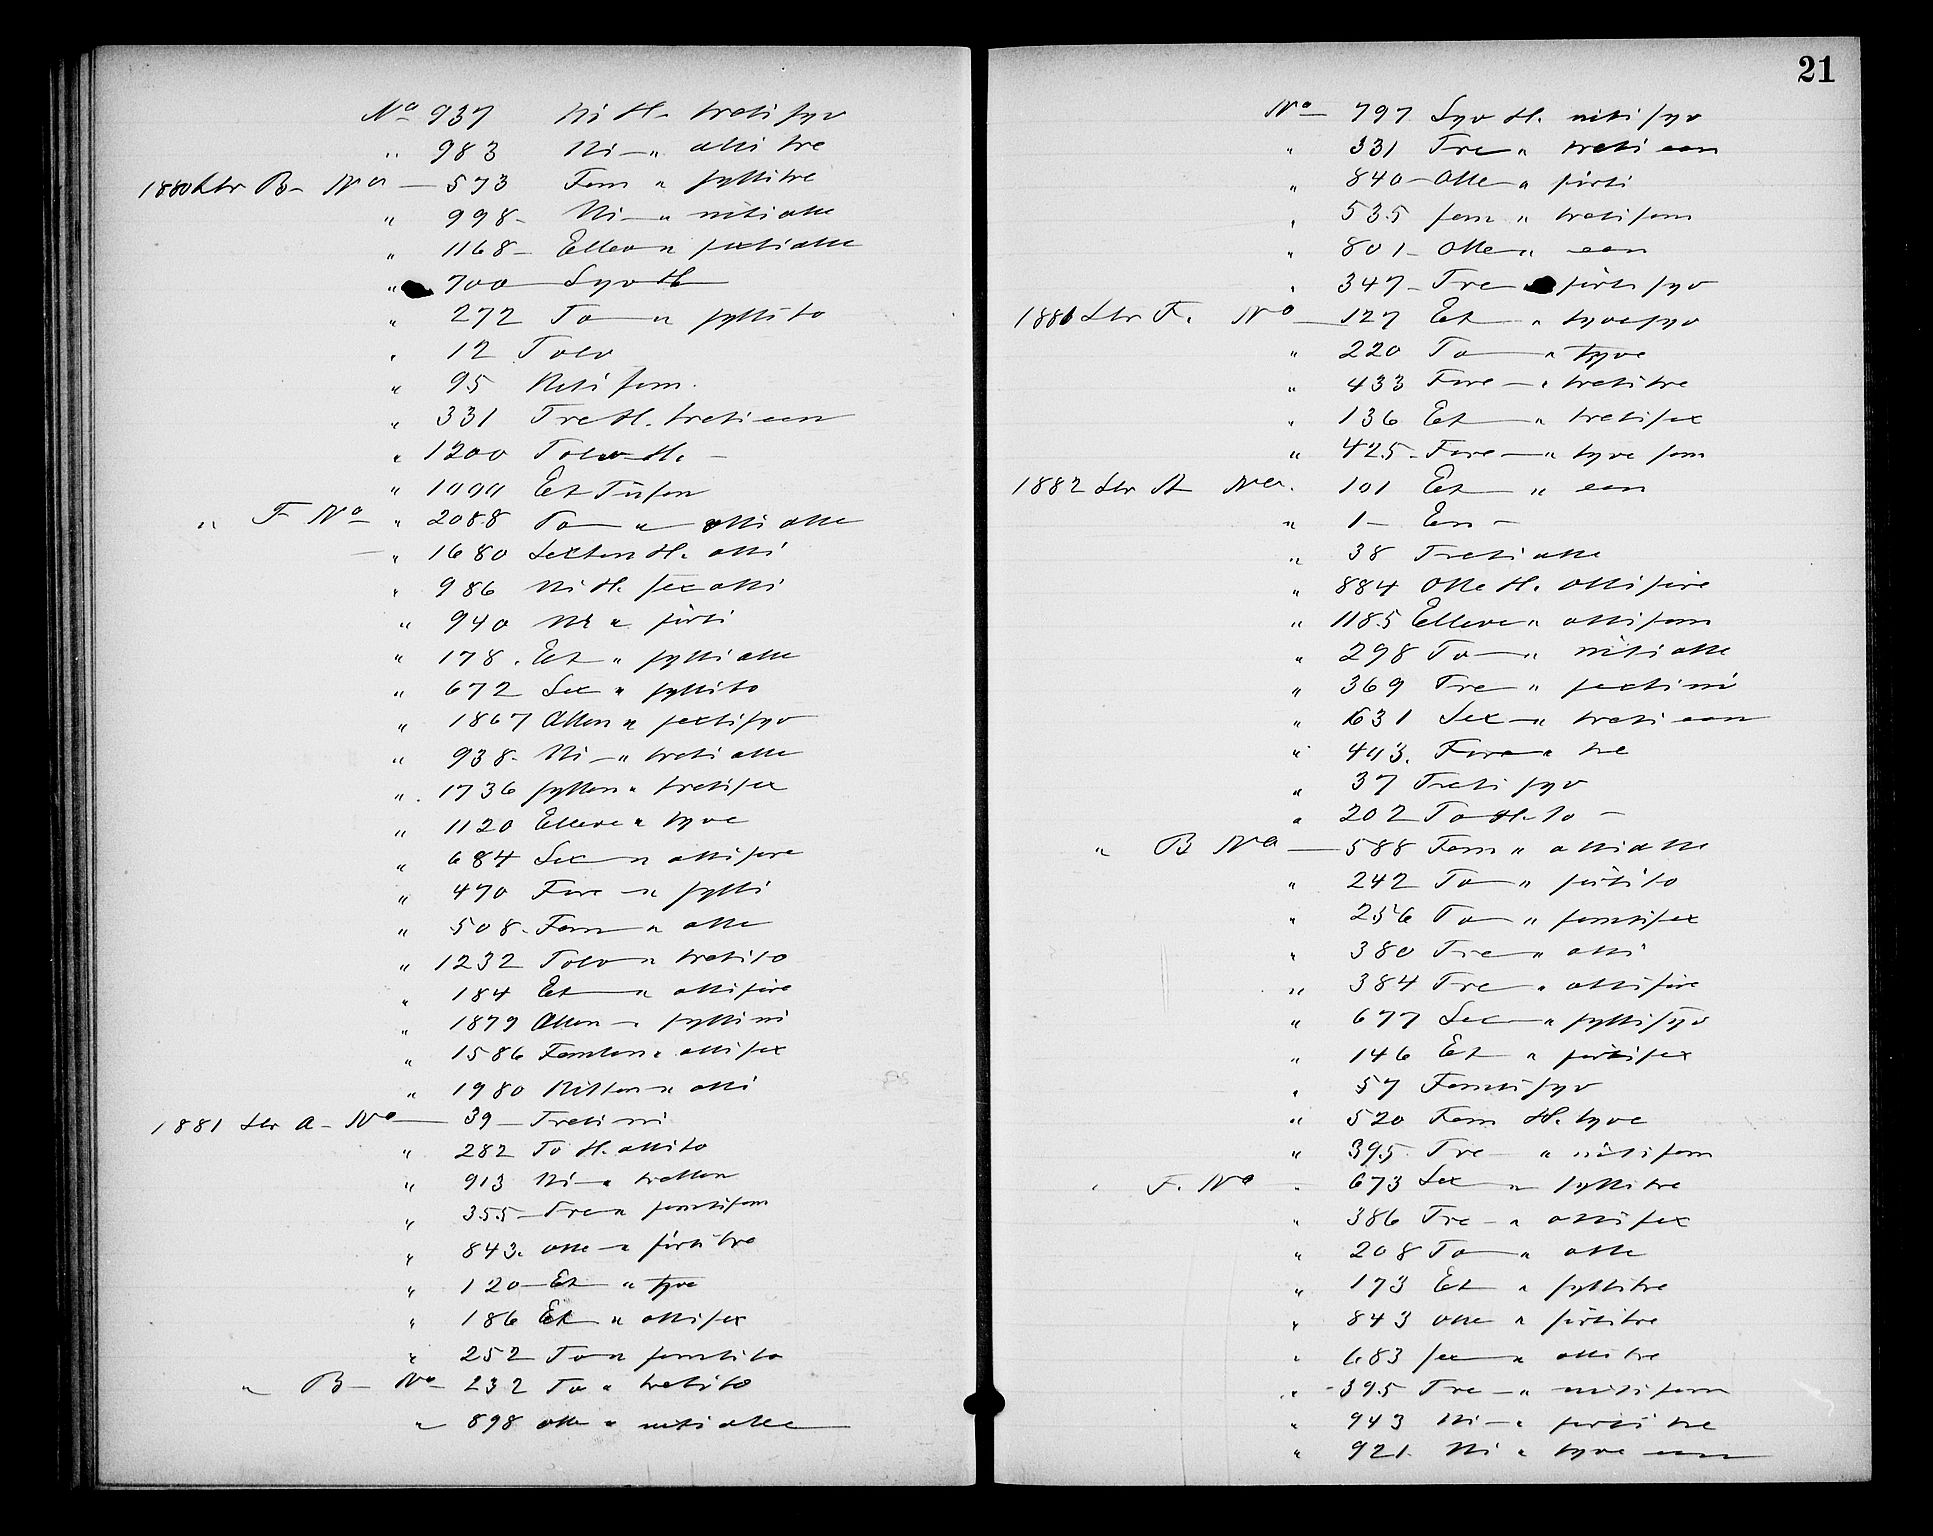 No 937 Ni H. treti syv
" 983 Ni — " otti tre
1880 Ltr B - No — 573 Fem " sytti tre
" 998 - Ni — " nitiotte
" 1168 - Elleve " sextiotte
" 700 Syv H
" 272 To — " sytti to
" 12 Tolv
" 95 Niti fem.
" 331 Tre H. treti een
" 1200 Tolv H. —
" 1000 Et Tusen
" F No - " 2088 To — " otti otte
— " 1680 Sexten H. otti
" 986 Ni H. sex otti
" 940 Ni " førti
" 178. Et " sytti otte
" 672 Sex " sytti to
" 1867 Atten " sextisyv
" 938 - Ni — " treti otte
" . 1736 sytten " tretisex
" 1120 Elleve " tyve
" 684 Sex — " otti fire
" 470 Fire — " sytti
" 508 - Fem — " otte
" 1232 Tolv — " treti to
" 184 Et — " otti fire
" 1879 Atten — " sytti ni
" 1586 Femten " otti sex
" 1980 Nitten — " otti
1881 Ltr A - No — 39 — Treti ni
" 282 To H. otti to
" 913 Ni — " tretten
" 355 — Tre " femti fem
" 843. otte — " førti tre
" 120 — Et " tyve
" 186 Et " otti sex
" 252 To — " femti to
" B — No - 232 To " treti to
" 898 otte " niti otte
21
No — 797 Syv H. niti syv
" 331 Tre " treti een
" 840 — Otte " førti
" 535 fem " treti fem
" 801 - Otte " een
" 347 - Tre " førti syv
1881 Ltr F. No — 127 Et — " tyve syv
" 220 To — " tyve
" 433 Fire — " treti tre
" 136 Et " tretisex
" 425 - Fire — " tyve fem
1882 Ltr A No. 101 Et — " een
" 1 — En —
" 38 Treti otte
" 884 Otte H. otti fire
" 1185 Elleve " otti fem
" 298 To — " niti otte
" 369 Tre " sexti ni
" 631 Sex — " treti een
" 403. Fire " tre
" 37 Treti syv
" 202 To H. to —
" B No — 588 Fem " otti otte
" 242 To — " førti to
" 256 To — " femti sex
" 380 Tre — " otti
" 384 Tre — " otti fire
" 677 Sex — " sytti syv
" 146 Et " førti sex
" 57 Femti syv
" 520 Fem H. tyve
" 395 Tre — " niti fem
" F. No " 673 Sex — " sytti tre
" 386 Tre — " otti sex
" 208 To — " otte
" 173 Et " sytti tre
" 843 otte " førti tre
" 683 sex — " otti tre
" - 395 Tre — " niti fem
" 943 Ni — " førti tre
" 921 Ni " tyve een